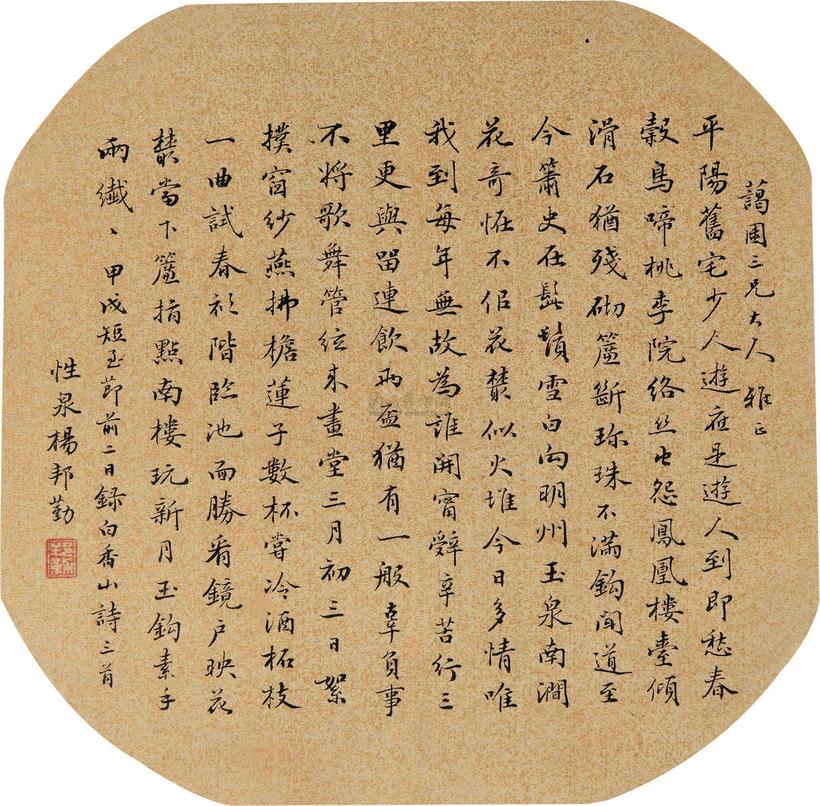 藹圃三兄大人雅正
平陽舊宅少人遊應是遊人到即愁春
穀鳥啼桃李院絡絲虫怨鳳凰樓臺傾
滑石猶殘砌簾斷珎珠不滿鈎聞道至
今簫史在髭鬚雪白向明州玉泉南澗
花奇恠不佀花叢似火堆今日多情唯
我到每年無故為誰開甯辤辛苦行三
里更與畱連飲兩盃猶有一般辜負事
不將歌舞管絃來畫堂三月初三日絮
撲窗紗燕拂檐蓮子數杯嘗冷酒柘枝
一曲試春衫階臨池面勝看鏡户映花
叢當下簾指點南樓玩新月玉鈎素手
兩纖〻甲戌短至節前二日録白香山詩三首
性泉楊邦勤